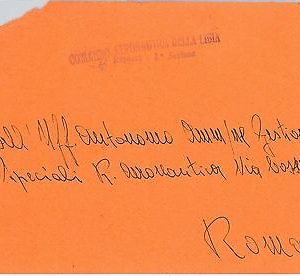 COMANDO AERONAUTICA DELLA LIBIA
all' Uff. Autonomo Amm/ne Gestioni
Speciali R. Aeronautica Via
Roma